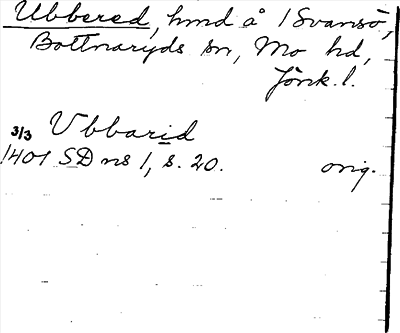 Ubbered, hmd å 1 Svansö,
Bottnaryds sn, Mo hd,
Jönk. l.
3/3 Ubbarid
1401 SD ns 1, s. 20. orig.